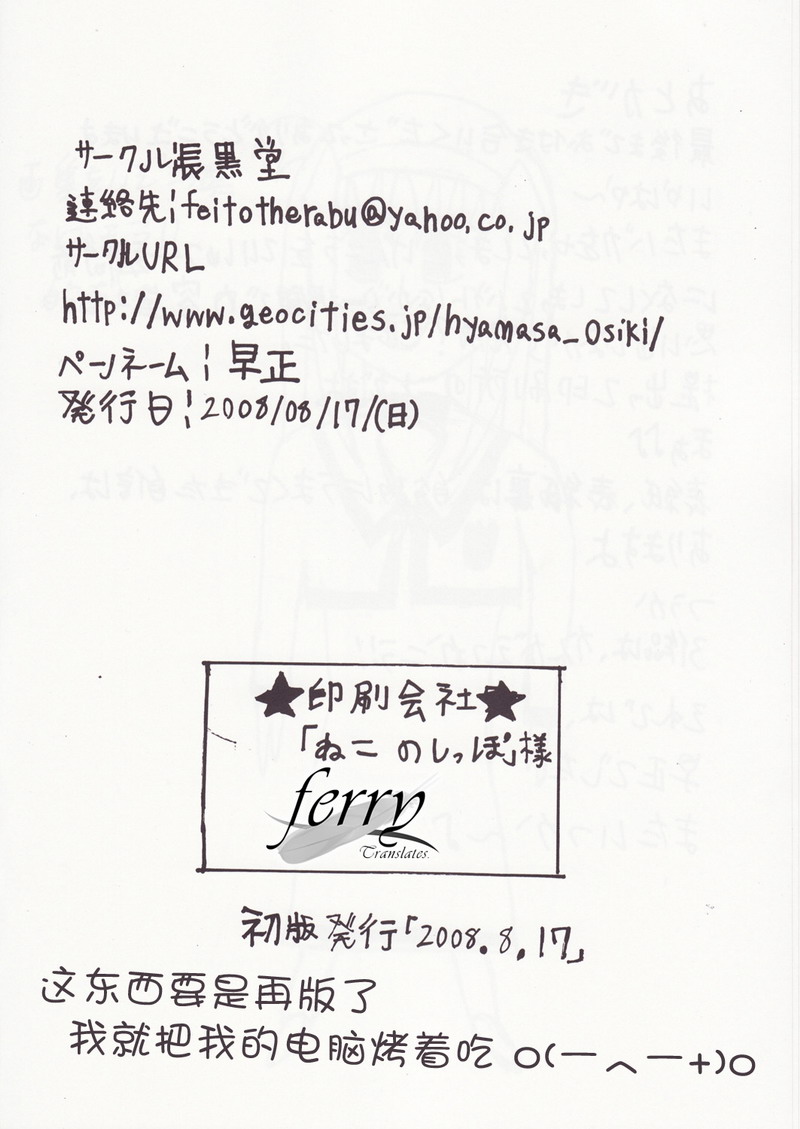 サークル張黒堂
連絡先:feitotherabu@yahoo.co.jp
サークルURL
http://www.geocities.jp/hyamasa_osiki/
ペンネーム:早正
発行日:2008/08/17/(日)
★印刷会社★
「ねこのしっぽ」様
ferry
Translates.
初版発行「2008.8.17」
这东西要是再版了
我就把我的电脑烤着吃 o(一︿一+)o